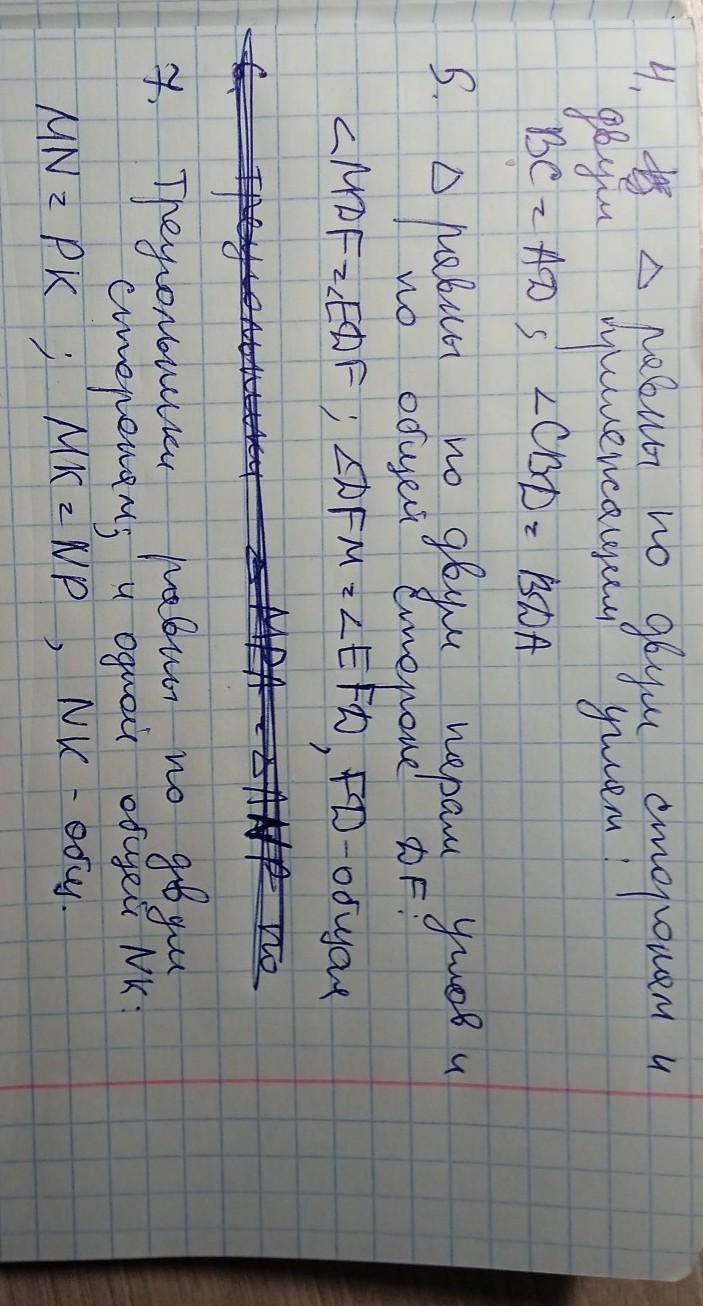 4. △ равны по двум сторонам и
двум прилежащим углам:
BC = AD; ∠CBD = BDA
5. △ равны по двум парам углов и
по общей стороне DF:
∠MDF = ∠EDF; ∠DFM = ∠EFD, FD - общая
6. Треугольники △MPA = △ANP по
7. Треугольники равны по двум
сторонам; и одной общей NK:
MN = PK; MK = NP, NK - общ.